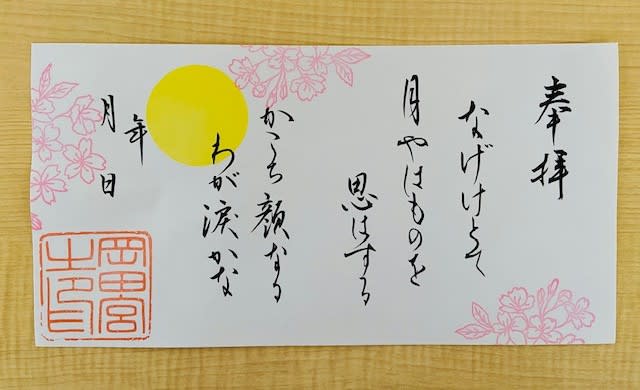 奉拝
なげけとて
月やはものを
思はする
かこち顔なる
わが涙かな
年
月 日
岡田宮之印